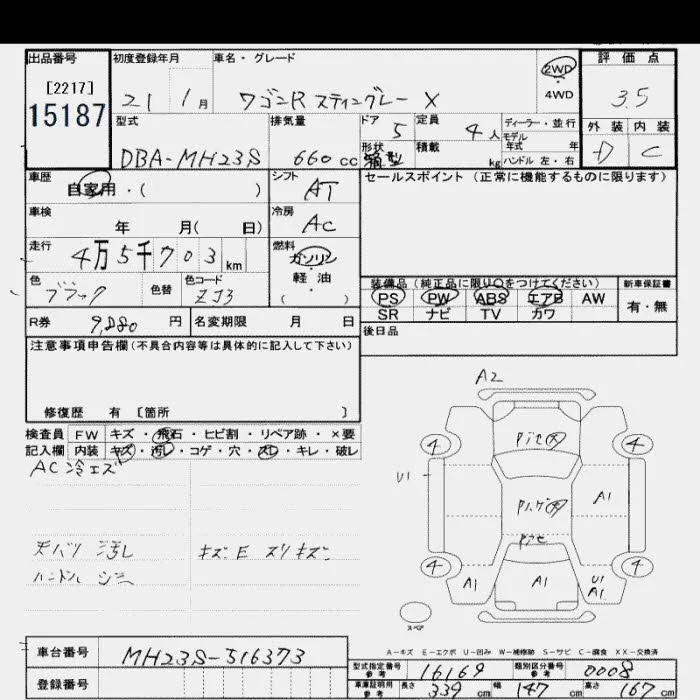 出品番号 初度登録年月 車名・グレード 2WD 評価点
[2217] 4WD
15187 21 1月 ワゴンR スティングレー X 3.5
型式 排気量 ドア 5 定員 4人 ディーラー・並行 外装 内装
形状 積載 kg モデル年式 年
DBA-MH23S 660cc 箱型 ハンドル 左・右 D C
車歴 自家用・( ) シフト AT セールスポイント (正常に機能するものに限ります)
車検 年 月( 日) 冷房 AC
走行 4万5千703km 燃料 ガソリン
軽油
( )
色 ブラック 色替 色コード ZJ3
装備品 (純正品に限り○をつけてください) 新車保証書
PS PW ABS エアB AW 有・無
SR ナビ TV カワ
R券 9,880円 名変期限 月 日 後日品
注意事項申告欄(不具合内容等は具体的に記入して下さい)
修復歴 有 [箇所 ]
検査員 FW キズ・飛石・ヒビ割・リペア跡・×要
記入欄 内装 キズ・汚レ・コゲ・穴・スレ・キレ・破レ
AC冷エズ
天バリ 汚レ キズE スリキズ
ハンドル
A2
4 4
U1
A1
4 4
A1 A1 U1
A1
スペア
A-キズ E-エクボ U-凹み W-補修跡 S-サビ C-腐食 XX-交換済
車台番号 MH23S-516373
登録番号
型式指定番号 参考 16169 類別区分番号 参考 0008
車庫証明用 参考 長さ 339cm 幅 147cm 高さ 167cm